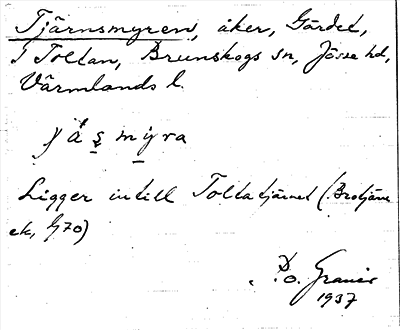 Tjärnsmyren, åker, Gärdet,
i Toltan, Brunskogs sn, Jösse hd,
Värmlands l.
myra
Ligger intill Toltatjärnet (Brotjärn
ek, G70)
P.o. Granér
1937